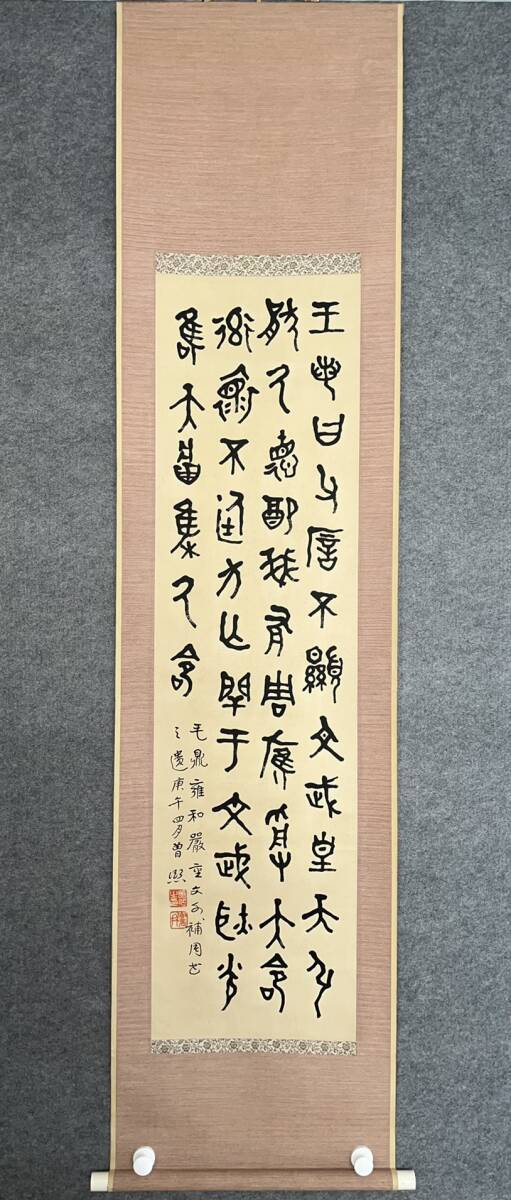 王若曰父㕌不顯文武皇天弘
猒氒德配我有周膺受大命
率褱不廷方亡閈于文武耿光
唯天將集氒命
毛鼎雍和嚴重文可補周書
之遺庚午四月曾熙